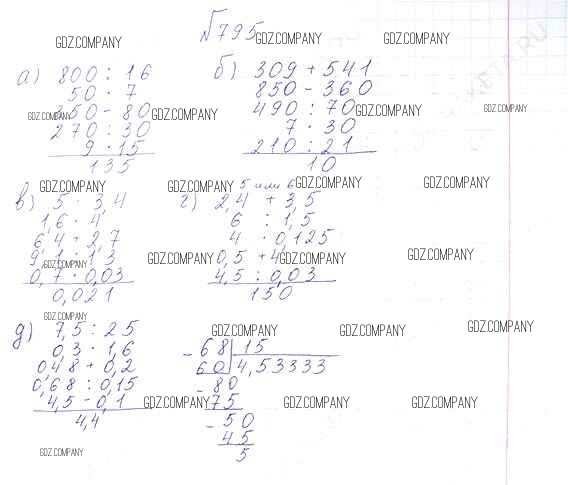 №795
GDZ.COMPANY GDZ.COMPANY GDZ.COMPANY
а) 800 : 16
50 · 7
350 - 80
270 : 30
9 · 15
135
б) 309 + 541
850 - 360
490 : 70
7 · 30
210 : 21
10
GDZ.COMPANY GDZ.COMPANY GDZ.COMPANY GDZ.COMPANY
GDZ.COMPANY GDZ.COMPANY GDZ.COMPANY
в) 5 · 3,4
1,6 · 4
6,4 + 2,7
9,1 : 1,3
0,7 · 0,03
0,021
5 или 6
г) 2,4 + 3,5
6 : 1,5
4 : 0,125
0,5 + 4
4,5 : 0,03
150
GDZ.COMPANY GDZ.COMPANY GDZ.COMPANY GDZ.COMPANY
GDZ.COMPANY
д) 7,5 : 25
0,3 · 1,6
0,48 + 0,2
0,68 : 0,15
4,5 - 0,1
4,4
GDZ.COMPANY GDZ.COMPANY GDZ.COMPANY
- 68 15
60 4,53333
- 80
75
- 50
45
5
GDZ.COMPANY GDZ.COMPANY GDZ.COMPANY
GDZ.COMPANY